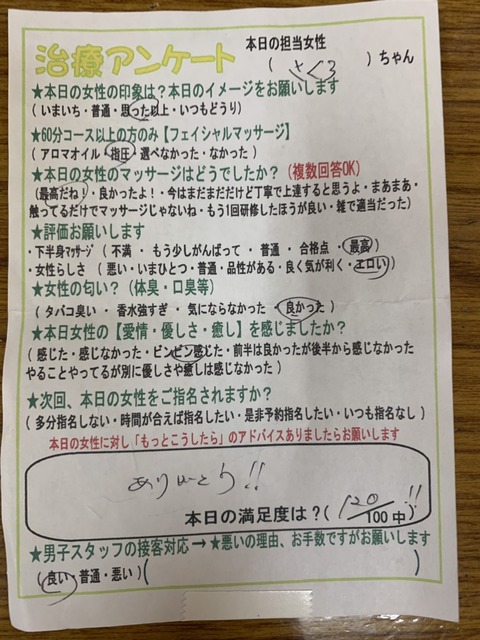 治療アンケート
本日の担当女性
( さくら )ちゃん
★本日の女性の印象は?本日のイメージをお願いします
( いまいち・普通・思った以上・いつもどうり)
★60分コース以上の方のみ【フェイシャルマッサージ】
( アロマオイル・指圧・選べなかった・なかった )
★本日の女性のマッサージはどうでしたか? (複数回答OK)
(最高だね!・良かったよ!・今はまだまだだけど丁寧で上達すると思うよ・まあまあ・
触ってるだけでマッサージじゃないね・もう1回研修したほうが良い・雑で適当だった)
★評価お願いします
・下半身マッサージ ( 不満 ・ もう少しがんばって ・ 普通 ・ 合格点 ・ 最高 )
・女性らしさ ( 悪い・いまひとつ・普通・品性がある・良く気が利く・エロい )
★女性の匂い? (体臭・口臭等)
( タバコ臭い ・ 香水強すぎ ・ 気にならなかった ・ 良かった )
★本日女性の【愛情・優しさ・癒し】を感じましたか?
( 感じた・感じなかった・ビンビン感じた・前半は良かったが後半から感じなかった
やることやってるが別に優しさや癒しは感じなかった )
★次回、本日の女性をご指名されますか?
( 多分指名しない・時間が合えば指名したい・是非予約指名したい・いつも指名なし )
本日の女性に対し「もっとこうしたら」のアドバイスありましたらお願いします
ありがとう!!
本日の満足度は?( 120!! / 100中 )
★男子スタッフの接客対応 → ★悪いの理由、お手数ですがお願いします
( 良い・普通・悪い ) ( )